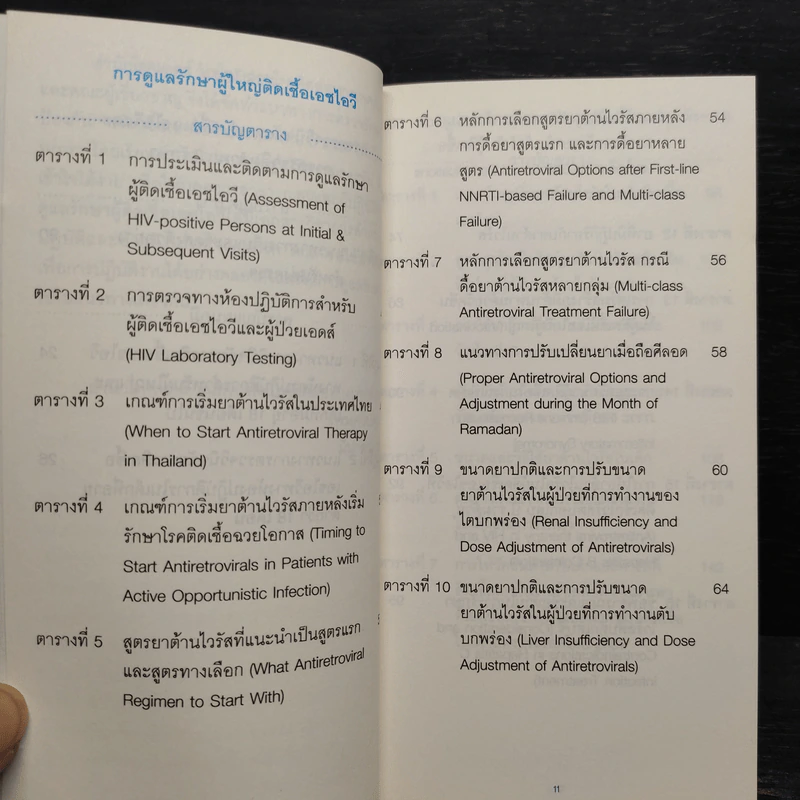 การดูแลรักษาผู้ใหญ่ติดเชื้อเอชไอวี
สารบัญตาราง
ตารางที่ 1 การประเมินและติดตามการดูแลรักษา
ผู้ติดเชื้อเอชไอวี (Assessment of
HIV-positive Persons at Initial &
Subsequent Visits)
ตารางที่ 2 การตรวจทางห้องปฏิบัติการสำหรับ
ผู้ติดเชื้อเอชไอวีและผู้ป่วยเอดส์
(HIV Laboratory Testing)
ตารางที่ 3 เกณฑ์การเริ่มยาต้านไวรัสในประเทศไทย
(When to Start Antiretroviral Therapy
in Thailand)
ตารางที่ 4 เกณฑ์การเริ่มยาต้านไวรัสภายหลังเริ่ม
รักษาโรคติดเชื้อฉวยโอกาส (Timing to
Start Antiretrovirals in Patients with
Active Opportunistic Infection)
ตารางที่ 5 สูตรยาต้านไวรัสที่แนะนำเป็นสูตรแรก
และสูตรทางเลือก (What Antiretroviral
Regimen to Start With)
ตารางที่ 6 หลักการเลือกสูตรยาต้านไวรัสภายหลัง 54
การดื้อยาสูตรแรก และการดื้อยาหลาย
สูตร (Antiretroviral Options after First-line
NNRTI-based Failure and Multi-class
Failure)
ตารางที่ 7 หลักการเลือกสูตรยาต้านไวรัส กรณี 56
ดื้อยาต้านไวรัสหลายกลุ่ม (Multi-class
Antiretroviral Treatment Failure)
ตารางที่ 8 แนวทางการปรับเปลี่ยนยาเมื่อถือศีลอด 58
(Proper Antiretroviral Options and
Adjustment during the Month of
Ramadan)
ตารางที่ 9 ขนาดยาปกติและการปรับขนาด 60
ยาต้านไวรัสในผู้ป่วยที่การทำงานของ
ไตบกพร่อง (Renal Insufficiency and
Dose Adjustment of Antiretrovirals)
ตารางที่ 10 ขนาดยาปกติและการปรับขนาด 64
ยาต้านไวรัสในผู้ป่วยที่การทำงานตับ
บกพร่อง (Liver Insufficiency and Dose
Adjustment of Antiretrovirals)
11